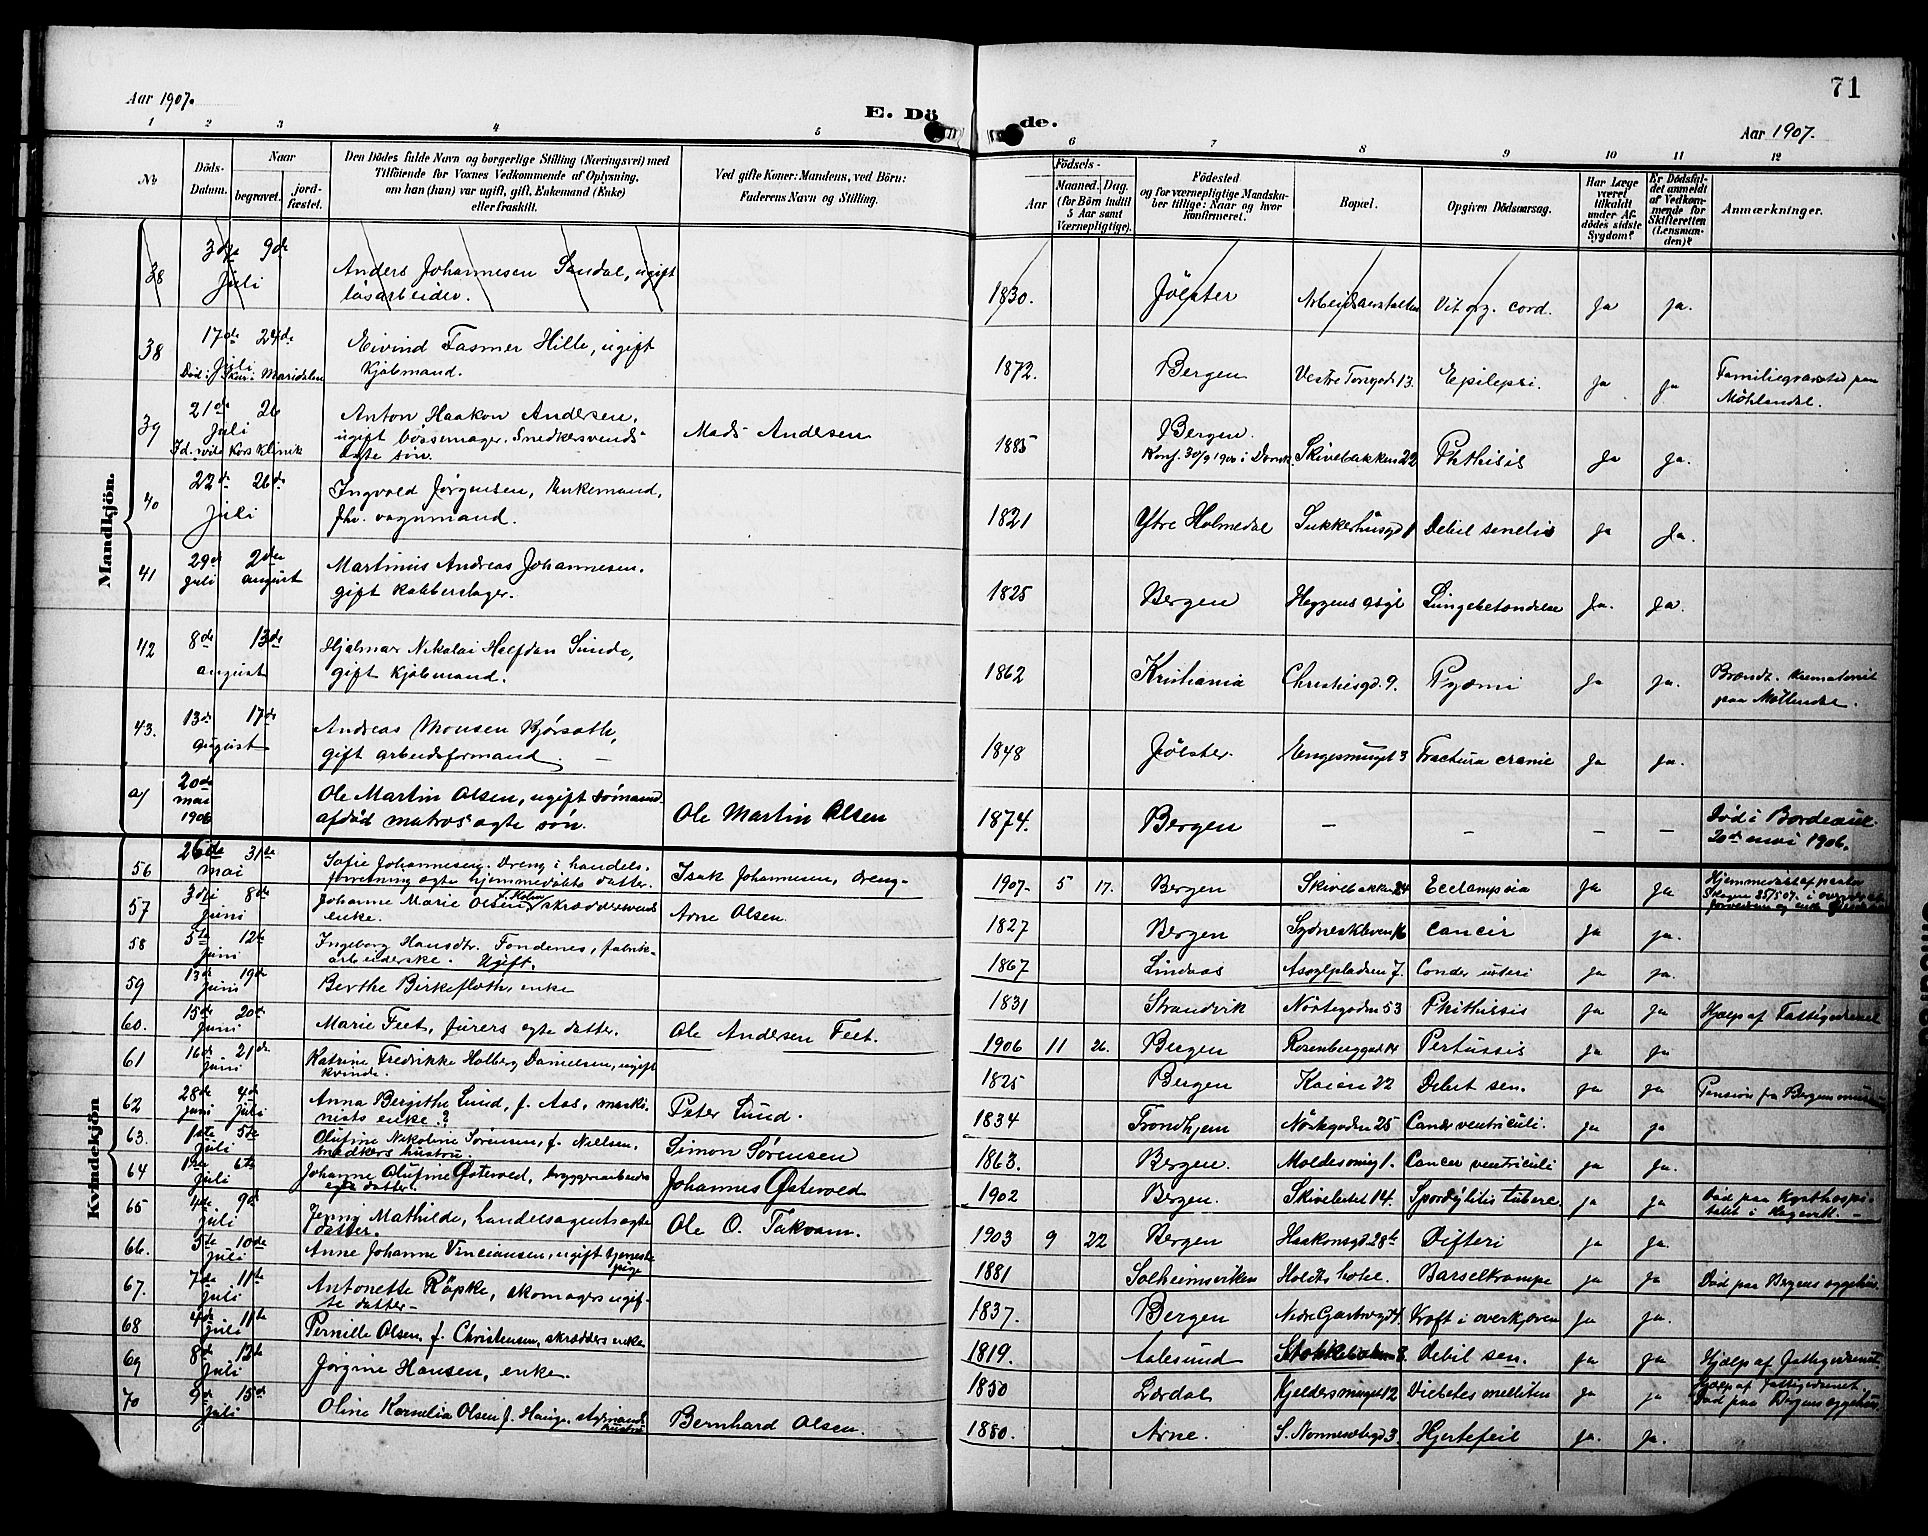 Aar 1907.
E. Dö de.
71
Aar 1907.
1 2 3 4 5 6 7 8 9 10 11 12
No
Döds-
Datum.
Naar
begravet.
jord-
fæstet.
Den Dödes fulde Navn og borgerlige Stilling (Næringsvei) med
Tilföiende for Voxnes Vedkommende af Oplysning,
om han (hun) var ugift, gift, Enkemand (Enke)
eller fraskilt.
Ved gifte Koner: Mandens, ved Börn:
Faderens Navn og Stilling.
Födsels-
Aar
Maaned. Dag.
(for Börn indtil
5 Aar samt
Værnepligtige).
Födested
og for værnepligtige Mandskaber
tillige: Naar og hvor
konfirmeret.
Bopæl.
Opgiven Dödsaarsag.
Har Læge
været
tilkaldt
under Af-
dödes sidste
Sygdom?
Er Dödsfal-
det anmeldt
af Vedkom-
mende for
Skifteretten
(Lensman-
den)?
Anmærkninger.
Mandkjön.
38 3die Juli 9de Anders Johannesen Sandal, ugift
løsarbeider. 1830. Jölster Arbeidsanstalten Vit org. cord. Ja ja.
38 17de Juli 24de Eivind Fasmer Hille, ugift
Kjöbmand. 1872. Bergen Vestre Torvgd. 13. Epilepsi. ja ja Familiegravsted paa
Möhlendal.
39 21de Juli 26 Anton Haakon Andersen,
ugift bössemager, Snedkersvends
ægte sön. Mads Andersen 1885 Bergen.
Konf. 30/9 1900 i Domk. Skivebakken 22 Phthisis ja ja.
40 22de Juli 26de Ingvald Jörgensen, Enkemand,
fhv. vognmand. 1821 Ytre Holmedal Sukkerhusgd 1 Debil senelis ja Ja.
41 29de juli 2den august Martinus Andreas Johannesen.
gift kobberslager. 1825 Bergen Lungebetændelse Ja. Ja.
42 8de august 13de Hjalmar Nikolai Halfdan Sunde,
gift Kjöbmand. 1862 Kristiania Christiesgd. 9. Pyæmi ja ja. Brændt. Krematoriet
paa Möllendal.
43. 13de august 17de Andreas Monsen
gift arbeidsformand. 1848 Jölster. Engesmuget 3 Fractura cranii Ja ja.
a) 20de mai 1906 Ole Martin Olsen, ugift sömand.
afdöd matros ægte sön. Ole Martin Olsen 1874. Bergen – – – – Död i Bordeaux
20de mai 1906.
Kvindekjön
56 26de mai 31te Sofie Johannesen. Dreng i handels-
forretning ægte hjemmedöbte datter. Isak Johannesen, dreng- 1907. 5 17. Bergen Skivebakken 24 Eclampsia ja ja
57 3die Juni 8de Johanne Marie Olsen skræddersvends
enke. Arne Olsen. 1827 Bergen Sydneskleven 16 Cancer ja ja.
58 5te Juni 12te Ingeborg Hansdtr. Fondenes, fabrik-
arbeiderske. Ugift. 1867 Lindaas Asylpladsen 7. Cancer uteri ja ja.
59 13de Juni 19de Berthe Birkefloth, enke 1831 Strandvik 53 Phthisis ja ja Hjælp af Fattigvæsenet
60. 15de Juni 20de Marie Feet, Jurers ægte datter. Ole Andersen Feet. 1906 11 26. Bergen Rosenberggad 14 Pertussis ja ja
61 16de Juni 21de Katrine Fredrikke Holberg Danielsen, ugift
kvinde. 1825 Bergen Kaien 22 Debil sen. ja ja Pension fra Bergens museum
62 28de juni 4de juli Anna Bergithe Lund, f. Aas, maski-
nists enke? Peter Lund. 1834 Trondhjem 25 Cancer ventriculi. ja ja
63. 1ste juli 5te Olufine Nikoline Sørensen, f. Nielsen.
snedkers hustru. Simon Sörensen 1863. Bergen. 1. Cancer ventriculi ja ja
64 1ste juli 6te Johanne Olufine Østervold, bryggeriarbeiders
ægte datter. Johannes Østervold 1902 Bergen. 14. Spondylitis tuberc. ja ja. Död paa Kysthospi-
talet i Hagevik. –
65 4de juli 9de Jenny Mathilde, handelsagents ægte
datter. Ole O. Takvam. 1903 9 22 Bergen Haakonsgd 28b Difteri ja ja.
66. 5te juli 10de Anne Johanne Vinciansen, ugift tjeneste-
pige 1881 Solheimsviken Holdts hotel. Barselkrampe ja ja Död paa Bergens sygehus
67. 7de juli 11te Antonette Röpke, skomagers ugif-
te datter – 1837. Bergen Nedre 4 Kræft i overkjæven ja ja
68 4de juli 11te Pernille Olsen, f. Christensen, skrædders enke. 1819. Aalesund 8 Debil sen. ja ja Hjælp af Fattigvæsenet
69 8de juli 13te Jörgine Hansen, enke. 1850 Lærdal 12 Diabetes mellitus ja ja Hjælp af Fattigvæsenet
Död paa Bergens sygehus.
70 9de juli 15de Oline Kornelia Olsen f. Hauge, styrmands
hustru Bernhard Olsen. 1880. Arne. 3. Hjertefeil ja. ja.